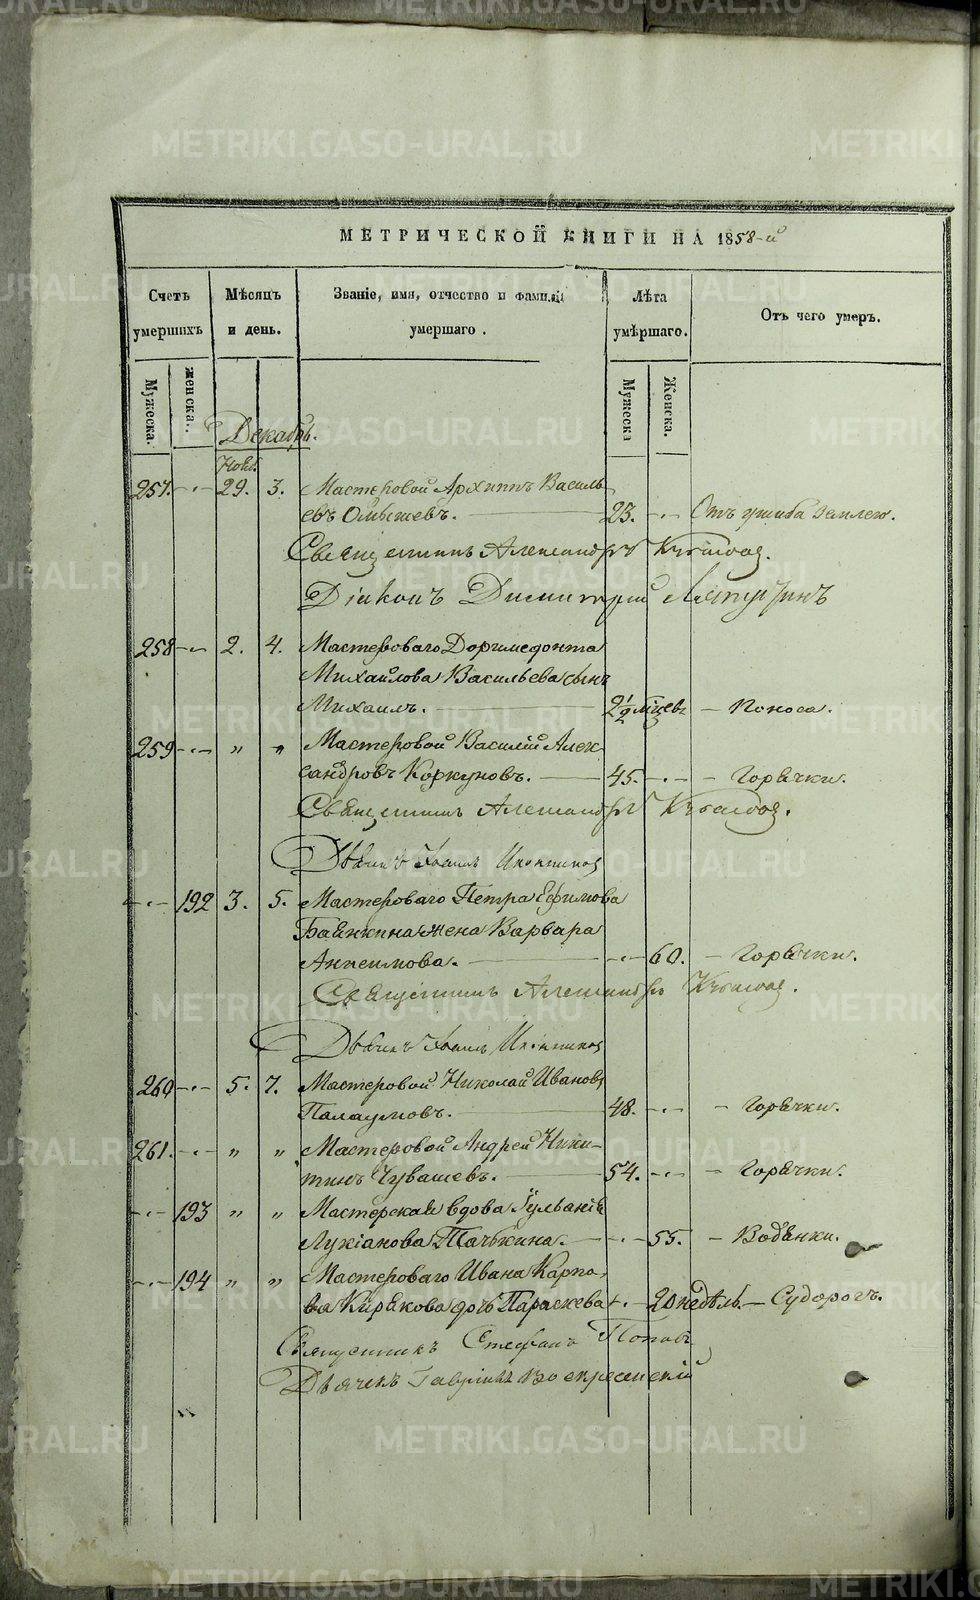 METRIKI.GASO-URAL.RU
МЕТРИЧЕСКОЙ КНИГИ НА 1858-й
Счетъ умершихъ
Мѣсяцъ и день.
Званіе, имя, отчество и фамилія умершаго.
Лѣта умѣршаго.
Отъ чего умеръ.
Мужеска.
женска.
Мужеска
Женска.
Декабрь.
Нояб.
257. 29. 3. Мастеровой Архипъ Василь
евъ 23. Отъ ушиба землею.
Священникъ Александръ
Діаконъ Димитрий
258 2. 4. Мастероваго Доримедонта
Михайлова Васильева сынъ
Михаилъ. 2½ мѣсяцевъ Поноса.
259 " " Мастеровой Василій Алек
сандровъ Коркуновъ. 45. Горячки.
Священникъ Александръ
Дьячекъ Іоаннъ
192 3. 5. Мастероваго Петра Ефимова
Баянкина жена Варвара
60. Горячки.
Священникъ Александръ
Дьячекъ Іоаннъ
260 5. 7. Мастеровой Николай Ивановъ
Палаумовъ. 48. Горячки.
261. " " Мастеровой Андрей Ники-
тинъ Чувашевъ. 54. Горячки.
193 " " Мастерская вдова Гульанія
Лукіанова 55. Водянки.
194 " " Мастероваго Ивана Карпо-
ва Кирякова дочь Параскева 20 недѣль. Судорогъ.
Священникъ Стефанъ Поповъ
Дьячекъ Гавриилъ Воскресенскій